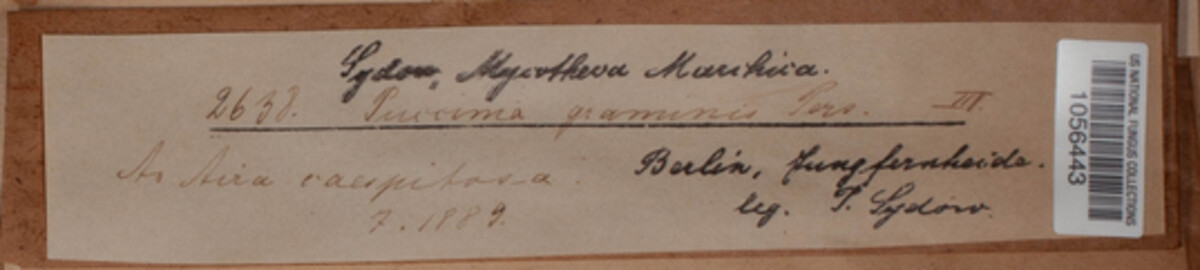 Sydow, Mycotheca Marchica.
2638. Puccinia graminis Pers. III.
An Aira caespitosa.
7. 1889.
Berlin, Jungfernheide.
leg. P. Sydow.
US NATIONAL FUNGUS COLLECTIONS
1056443